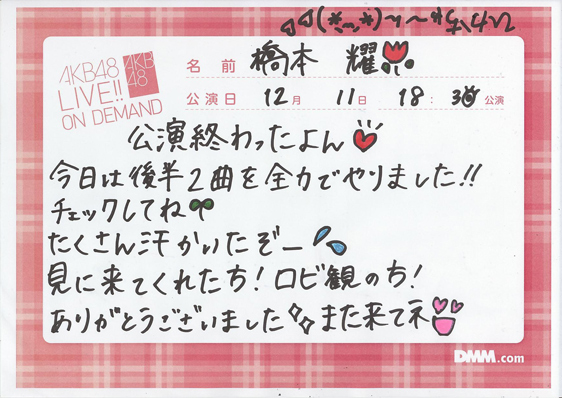 AKB48
LIVE!!
ON DEMAND
AKB
48
名前 橋本 耀
公演日 12月 11日 18:30公演
公演終わったよん
今日は後半2曲を全力でやりました!!
チェックしてね
たくさん汗かいたぞー
見に来てくれたち!ロビ観のち!
ありがとうございました また来てネ
DMM.com